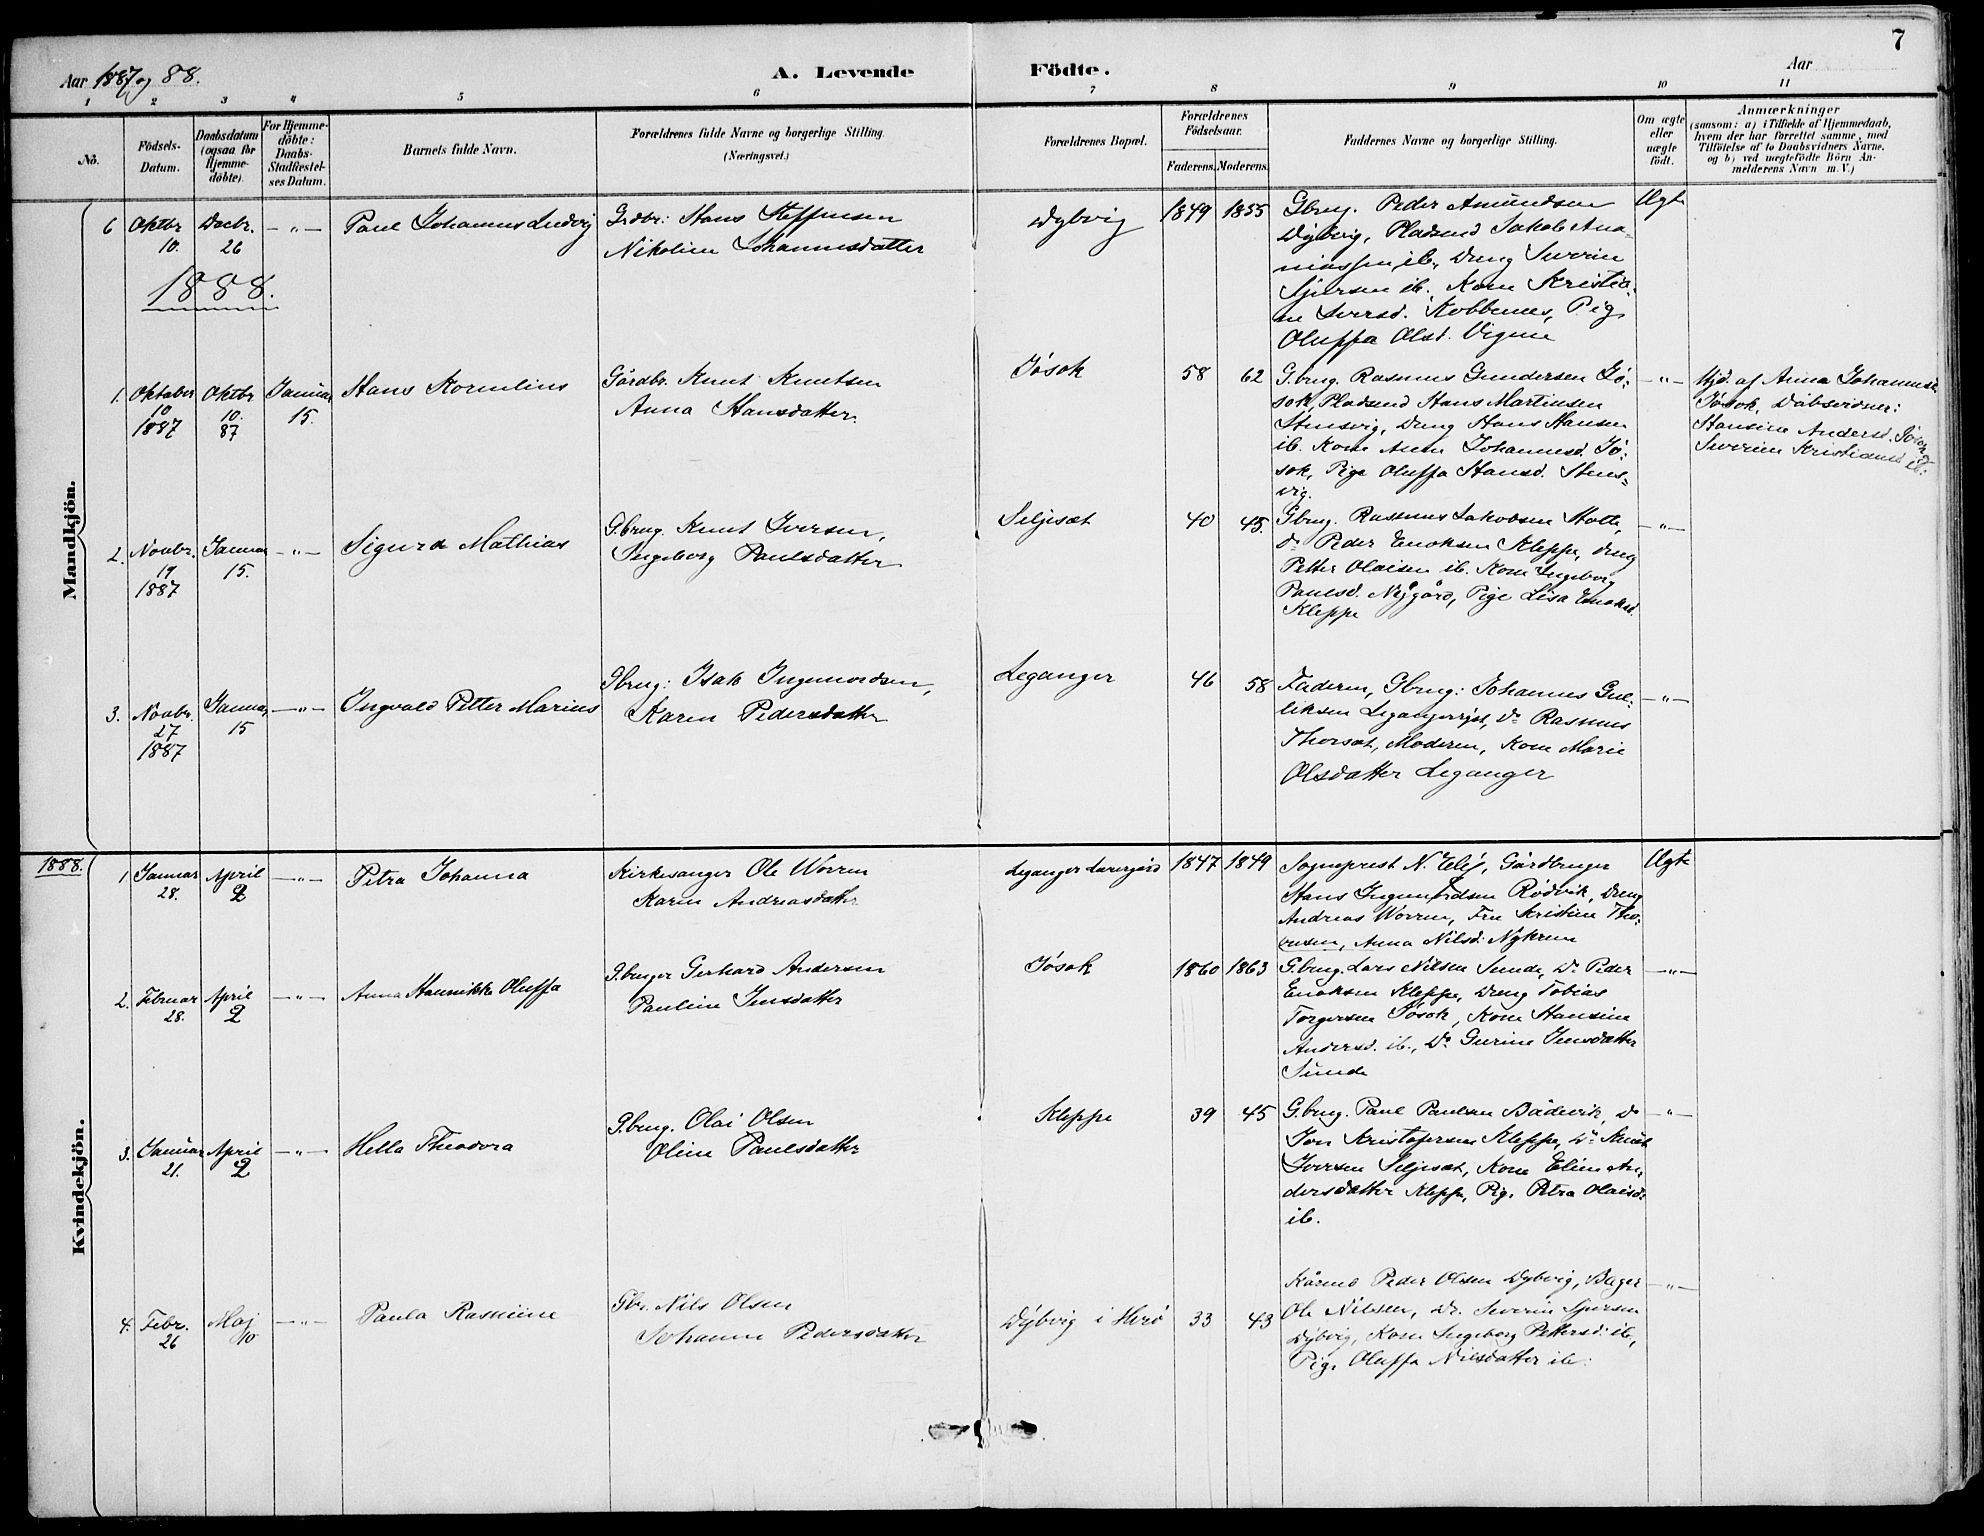 7
Aar 1887 og 88.
A. Levende Födte.
Aar
1 2 3 4 5 6 7 8 9 10 11
No.
Födsels-Datum.
Daabsdatum (ogsaa for Hjemme-döbte).
For Hjemme-döbte: Daabs-Stadfæstel-ses Datum.
Barnets fulde Navn.
Forældrenes fulde Navne og borgerlige Stilling.
(Næringsvei.)
Forældrenes Bopæl.
Forældrenes Födselsaar.
Faderens. Moderens.
Faddernes Navne og borgerlige Stilling.
Om ægte eller uægte födt.
Anmærkninger
(saasom: a) i Tilfælde af Hjemmedaab,
hvem der har forrettet samme, med
Tilföielse af to Daabsvidners Navne,
og b) ved uægtefödte Börn An-
melderens Navn m. V.)
Mandkjön.
6 Oktbr 10. Decbr. 26 -"- Paul Johannes Ludvig
Grdbr: Hans Steffensen
Nikoline Johannesdatter
Dybvig 1849 1855
Gbrug. Peder Amundsen
Dybvig, Pladsmd Jakob Ana-
niassen ib., Dreng Severin
Sjursen ib. Kone Kristia-
ne Iversd. Kobbenes, Pige
Oluffa Olsd. Vigene
Ægte
1888.
1. Oktober 10 1887 Oktbr 10. 87 Januar 15. Hans Kornelius
Gårdbr. Knut Knutsen
Anna Hansdatter
Jøsok 58 62
G.brug. Rasmus Gundersen Jø-
sok, Pladsmd Hans Martinsen
Stensvig, Dreng Hans Hansen
ib. Kone Anne Johannesd. Jø-
sok, Pige Oluffa Hansd. Stens-
vig.
-"-
Hjd. af Anna Johannesd.
Jøsok, Dåbsvidner:
Hansine Andersd. Jøsok
Severine Kristiansd ib.
2. Novbr. 19 1887 Januar 15. -"- Sigurd Mathias
Gbrug. Knut Iversen,
Ingeborg Paulsdatter
Seljesæt 40 45.
Gbrug. Rasmus Jakobsen Stolle,
Do Peder Enoksen Kleppe, Dreng
Petter Olaisen ib. Kone Ingeborg
Paulsd. Nygård, Pige Lisa Enoksd.
Kleppe
-"-
3. Novbr. 27 1887 Januar 15 -"- Ingvald Petter Marius
Gbrug: Isak Ingemordsen,
Karen Pedersdatter
Leganger 46 58
Faderen, Gbrug: Johannes Gul-
liksen Legangerejet, Do Rasmus
Thorsæt, Moderen, Kone Marie
Olsdatter Leganger
-"-
Kvindekjön.
1888.
1 Januar 28. April 2 -"- Petra Johanna
Kirkesanger Ole Worren
Karen Andreasdatter
Leganger Lærergård 1847 1849
Sogneprest N. Gårdbruger
Hans Ingemordsen Rødvik, Dreng
Andreas Worren, Fru Kristine Tho-
resen, Anna Nilsd. Nykrem
Ægte
2. Februar 28. April 2 -"- Anna Hannikke Oluffa
G.bruger Gerhard Andersen
Pauline Jensdatter
Jøsok 1860 1863
G.brug. Lars Nilsen Sunde, Do Peder
Enoksen Kleppe, Dreng Tobias
Torgersen Jøsok, Kone Hansine
Andersd. ib., Do Gurine Jensdatter
Sunde
-"-
3. Januar 21. April 2 -"- Hella Theodora
G.brug. Olai Olsen
Oline Paulsdatter
Kleppe 39 45
G.brug. Paul Paulsen Bådsvik, Do
Jon Kristofersen Kleppe, Do Knut
Iversen Seljesæt, Kone Eline An-
dersdatter Kleppe, Pige Petra Olaisd.
ib.
-"-
4. Febr. 26 Maj 10 -"- Paula Rasmine
Gbr. Nils Olsen
Johanne Pedersdatter
Dybvig i Herø 33 43
Kårmd Peder Olsen Dybvig, Bager
Ole Nilssen, Dr. Severin Sjursen
Dybvig, Kone Ingeborg Pettersd. ib,
Pige Oluffa Nilsdatter ib.
-"-